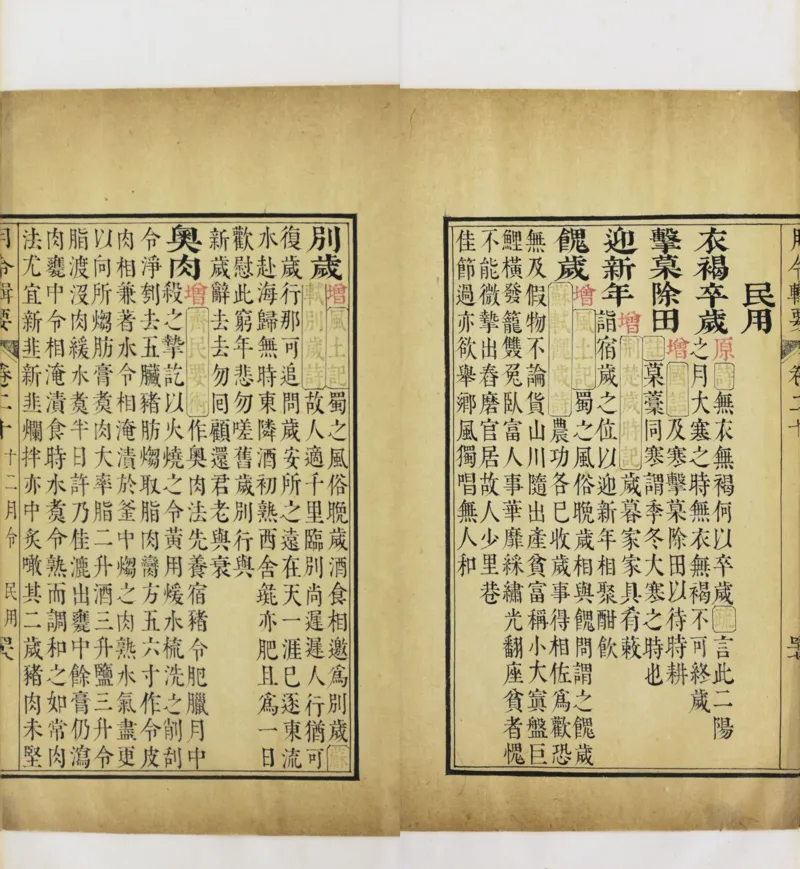 月令輯要 卷二十
民用
衣褐卒歲 原 詩 無衣無褐何以卒歲 註 言此二陽
之月大寒之時無衣無褐不可終歲
擊菒除田 增 國語 及寒擊菒除田以待時耕
註 菒藁同寒謂季冬大寒之時也
迎新年 增 荊楚歲時記 歲暮家家具肴蔌
詣宿歲之位以迎新年相聚酣飲
餽歲 增 風土記 蜀之風俗晚歲相與餽問謂之餽歲
蘇軾餽歲詩 農功各已收歲事得相佐爲歡恐
無及假物不論貨山川隨出產貧富稱小大寘盤巨
鯉橫發籠雙兔臥富人事華靡綵繡光翻座貧者愧
不能微摯出舂磨官居故人少里巷
佳節過亦欲舉鄉風獨唱無人和
別歲 增 風土記 蜀之風俗晚歲酒食相邀爲別歲 蘇
軾別歲詩 故人適千里臨別尚遲遲人行猶可
復歲行那可追問歲安所之遠在天一涯已逐東流
水赴海歸無時東隣酒初熟西舍彘亦肥且爲一日
歡慰此窮年悲勿嗟舊歲別行與
新歲辭去去勿回顧還君老與衰
奧肉 增 齊民要術 作奧肉法先養宿豬令肥臘月中
殺之摯訖以火燒之令黃用煖水梳洗之削刮
令淨刳去五臟豬肪煼取脂肉臠方五六寸作令皮
肉相兼著水令相淹漬於釜中煼之肉熟水氣盡更
以向所煼肪膏煑肉大率脂二升酒三升鹽三升令
脂渡沒肉緩水煑半日許乃佳漉出甕中餘膏仍瀉
肉甕中令相淹漬食時水煑令熟而調和之如常肉
法尤宜新韭新韭爛拌亦中炙噉其二歲豬肉未堅
月令輯要 卷二十 十二月令 民用